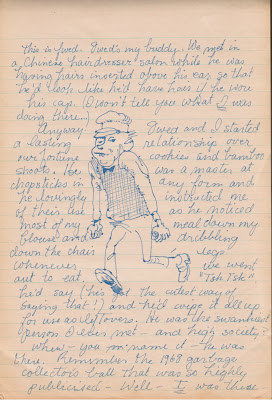 This is Fwed. Fwed's my buddy. We met in
a Chinese hairdresser salon while he was
having hairs inserted above his ear so that
he'd look like he'd have hair if he wore
his cap. (I won't tell you what I was
doing there...)
Anyway Fwed and I started
a lasting relationship over
our fortune cookies and bamboo
shoots. He was a master at
chopsticks in any form and
he lovingly instructed me
of their use as he noticed
most of my meal down my
blouse and dribbling
down the chair legs.
Whenever we went
out to eat, "Tsk Tsk"
he'd say (he has the cutest way of
saying that!) and he'd wipe it all up
for use as leftovers. He was the swankiest
person I ever met - and high society?
Whew - you name it - he was
there. Remember the 1968 garbage
collectors ball that was so highly
publicised - Well - I was there